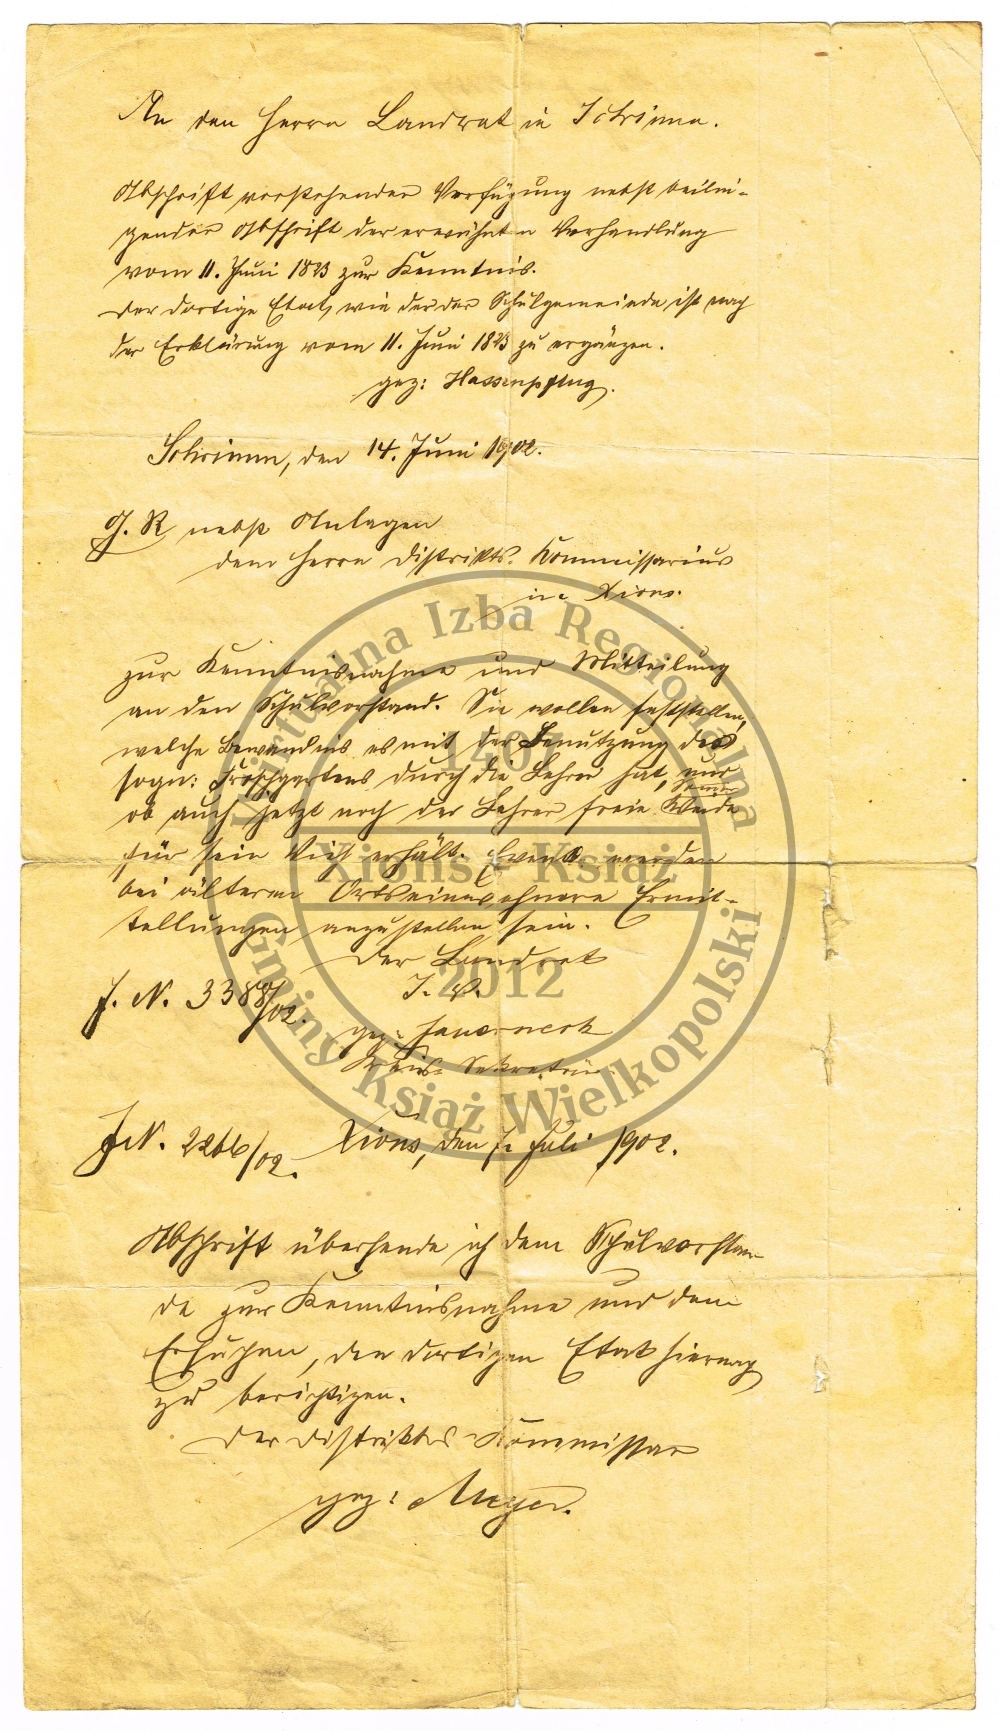 An den Herrn Landrat in Schrimm.
Abschrift vorstehender Verfügung nebst beilie-
gender Abschrift der erwähnten Verhandlung
vom 11. Juni 1823 zur Kenntnis.
Der dortige Etat, wie der der Schulgemeinde ist nach
der Erklärung vom 11. Juni 1823 zu ergänzen.
gez: Hassenpflug.
Schrimm, den 14. Juni 1902.
U. R. nebst Anlagen
dem Herrn Distrikts-Kommissarius
in Xions.
zur Kenntnisnahme und Mitteilung
an den Schulvorstand. Sie wollen feststellen,
welche Bewandnis es mit der Benutzung des
sogn: Froschgartens durch die Lehrer hat, und
ob auch jetzt noch der Lehrer freie Weide
für sein Vieh erhält. Event. werden
bei älteren Ortseinwohnern Ermit-
tellungen anzustellen sein.
Der Landrat
J. V.
J. N. 3388/02.
gez:
Kreis-Sekretär.
J.N. 2266/02. Xions, den 7. Juli 1902.
Abschrift übersende ich dem Schulvorstan-
de zur Kenntnisnahme und dem
Ersuchen, den dortigen Etat hiernach
zu berichtigen.
Der Distrikts-Kommissar
gez: Meyer.
Wirtualna Izba Regionalna
1407
Xions - Książ
2012
Gminy Książ Wielkopolski